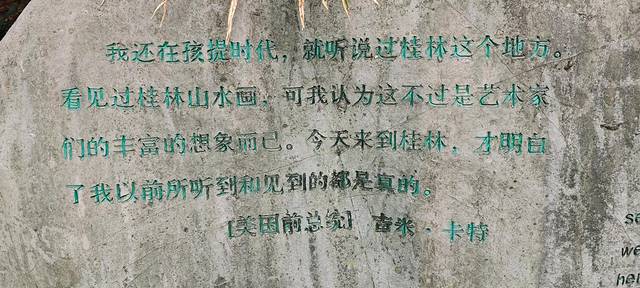 我还在孩提时代，就听说过桂林这个地方。
看见过桂林山水画，可我认为这不过是艺术家
们的丰富的想象而已。今天来到桂林，才明白
了我以前所听到和见到的都是真的。
[美国前总统] 吉米·卡特
we